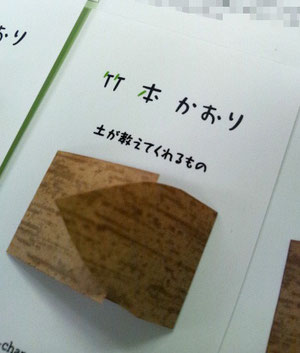 竹本かおり
土が教えてくれるもの
おり
-char